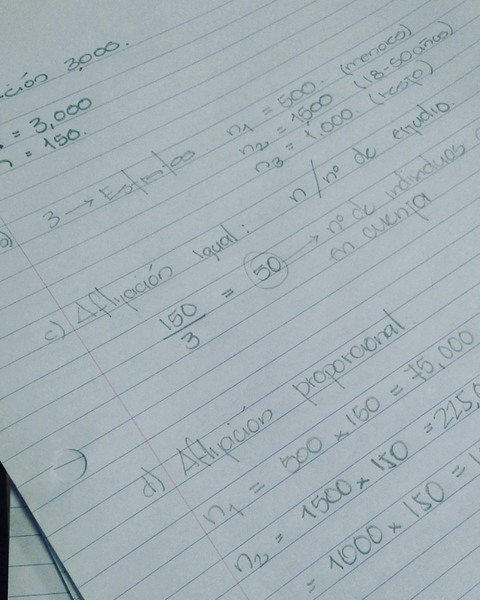 ción 3,000.
= 3,000
n = 150.
b) 3 → Estratos n1 = 500. (menores)
n2 = 1500 (18-50 años)
n3 = 1,000. (resto)
c) Afijación Igual: n/nº de estudio.
150/3 = 50 → nº de individuos
en cuenta
d) Afijación proporcional.
n1 = 500 x 150 = 75,000
n2 = 1500 x 150 = 225,
= 1000 x 150 = 1